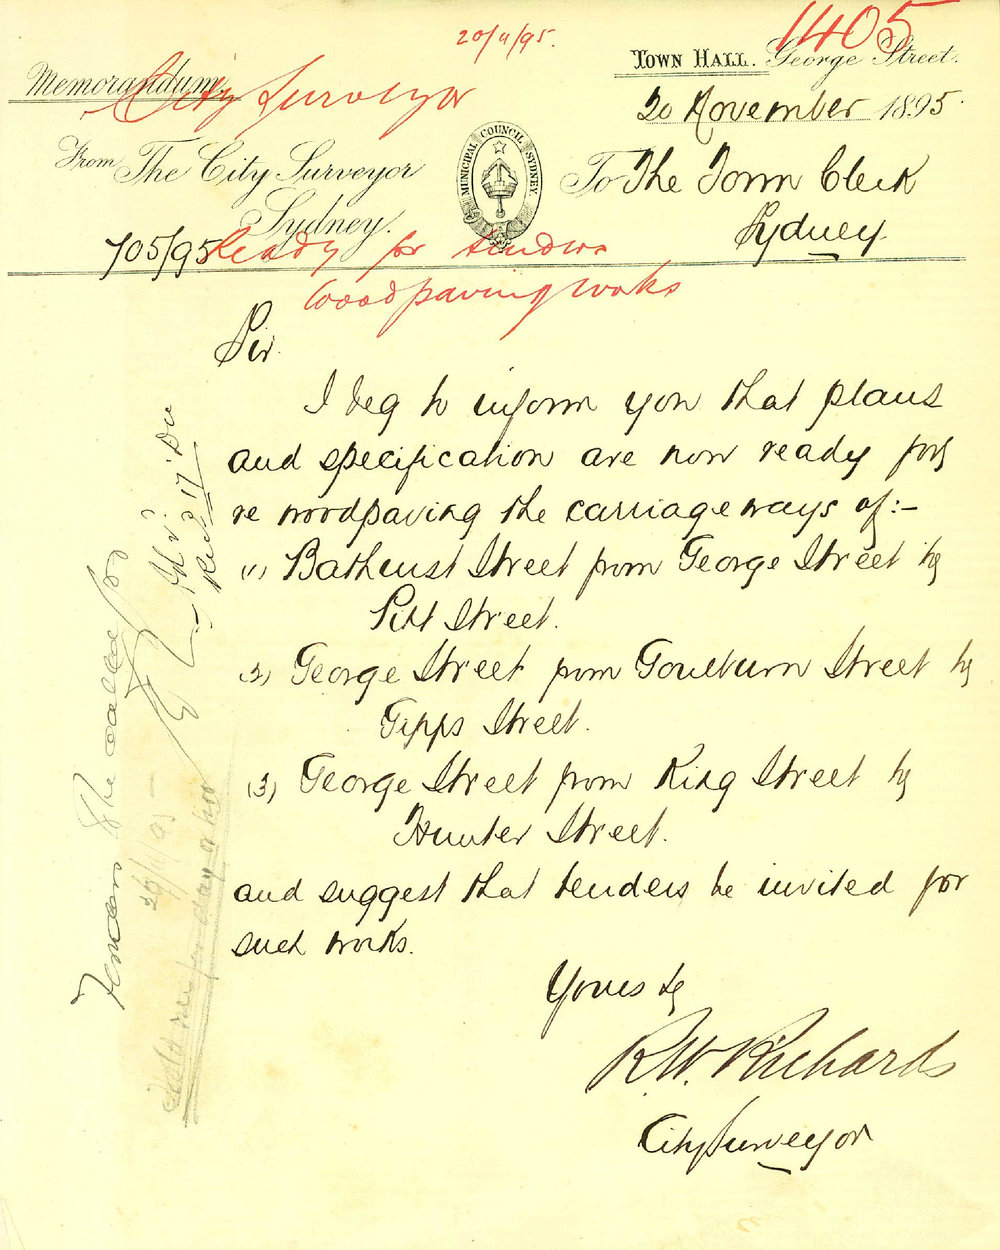 20/11/95.
1405
Town Hall. George Street.
Memorandum.
City Surveyor
20 November 1895.
From The City Surveyor
Sydney.
MUNICIPAL COUNCIL SYDNEY
To The Town Clerk
Sydney
705/95
Ready for tenders
Woodpaving works
Sir
I beg to inform you that plans
and specification are now ready for
re woodpaving the carriageways of:-
(1) Bathurst Street from George Street to
Pitt Street.
(2) George Street from Goulburn Street to
Gipps Street.
(3) George Street from King Street to
Hunter Street.
and suggest that tenders be invited for
such works.
Yours &c
R.W. Richards
City Surveyor
Tenders to be called for